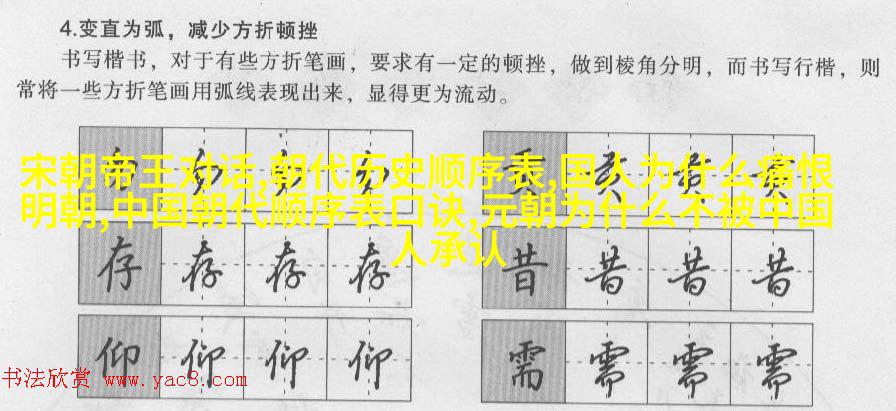 4.变直为弧，减少方折顿挫
书写楷书，对于有些方折笔画，要求有一定的顿挫，做到棱角分明，而书写行楷，则
常将一些方折笔画用弧线表现出来，显得更为流动。
宋朝帝王对话,朝代历史顺序表,国人为什么痛恨
明朝,中国朝代顺序表口诀,元朝为什么不被中国
人承认
存 存 存 存
昔 昔 昔 昔
仰 仰 仰 仰
需 需 需 需
书法欣赏 www.yac8.com